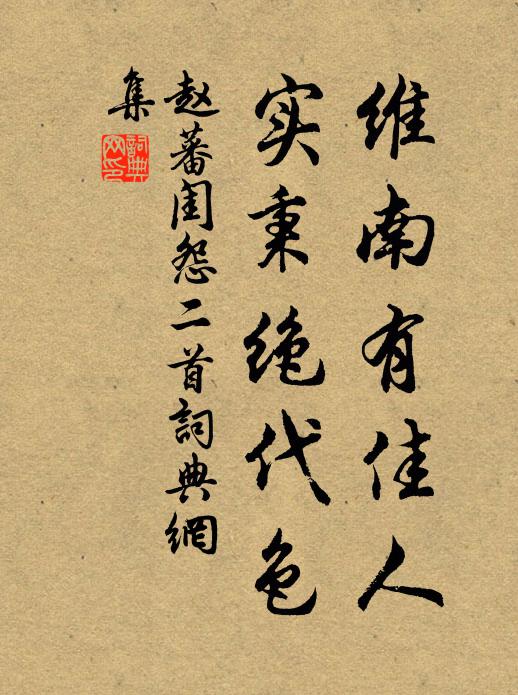 维南有佳人
实秉绝代色
赵蕃闺怨二首詞典網
集
詞典
网印